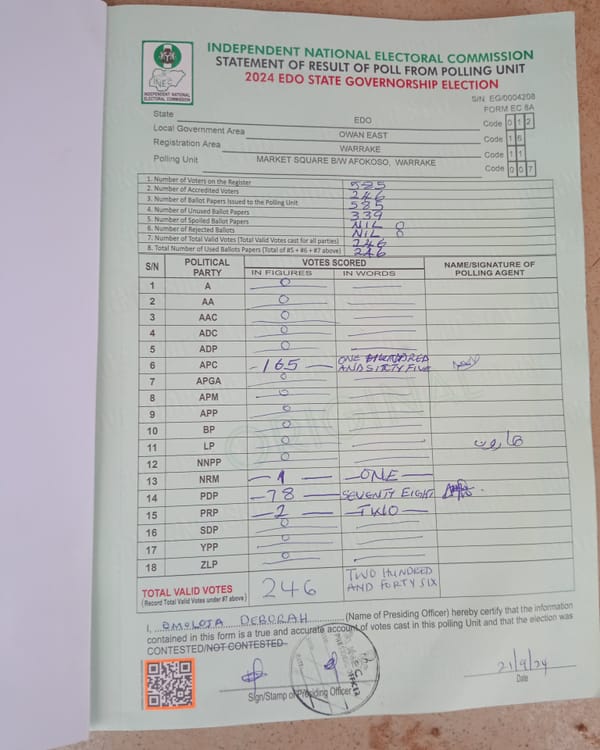 INDEPENDENT NATIONAL ELECTORAL COMMISSION
STATEMENT OF RESULT OF POLL FROM POLLING UNIT
2024 EDO STATE GOVERNORSHIP ELECTION
INEC
INDEPENDENT NATIONAL ELECTORAL COMMISSION
S/N EG/0004208
FORM EC 8A
State EDO Code 0 1 2
Local Government Area OWAN EAST Code 1 6
Registration Area WARRAKE Code 1 1
Polling Unit MARKET SQUARE B/W AFOKOSO, WARRAKE Code 0 0 7
1. Number of Voters on the Register 585
2. Number of Accredited Voters 246
3. Number of Ballot Papers Issued to the Polling Unit 585
4. Number of Unused Ballot Papers 339
5. Number of Spoiled Ballot Papers NIL 0
6. Number of Rejected Ballots NIL 0
7. Number of Total Valid Votes (Total Valid Votes cast for all parties) 246
8. Total Number of Used Ballots Papers (Total of #5 + #6 + #7 above) 246
S/N POLITICAL PARTY VOTES SCORED NAME/SIGNATURE OF POLLING AGENT
IN FIGURES IN WORDS
1 A 0
2 AA 0
3 AAC 0
4 ADC 0
5 ADP 0
6 APC -165- ONE HUNDRED AND SIXTY FIVE
7 APGA 0
8 APM 0
9 APP 0
10 BP 0
11 LP 0 هارون
12 NNPP 0
13 NRM -1- -ONE-
14 PDP -78- SEVENTY EIGHT
15 PRP -2- -TWO-
16 SDP 0
17 YPP 0
18 ZLP 0
ORIGINAL
TOTAL VALID VOTES 246 TWO HUNDRED AND FORTY SIX
(Record Total Valid Votes under #7 above)
I, OMOLOJA DEBORAH (Name of Presiding Officer) hereby certify that the information
contained in this form is a true and accurate account of votes cast in this polling Unit and that the election was
CONTESTED/NOT CONTESTED
21/9/24
Sign/Stamp of Presiding Officer Date